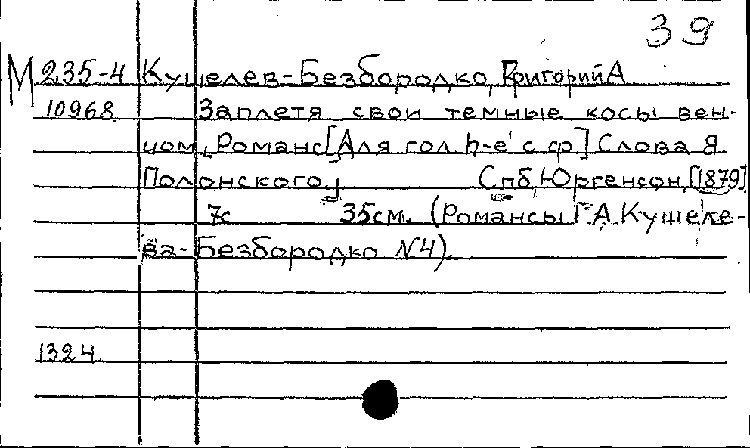 39
М 235-4 Кушелев-Безбородко, Григорий А
10968 Заплетя свои темные косы вен-
цом, Романс [Для гол h-e' с ф] Слова Я
Полонского, Спб, Юргенсон, [1879]
7с 35см. (Романсы Г А Кушеле-
ва-Безбородко №4).
1324